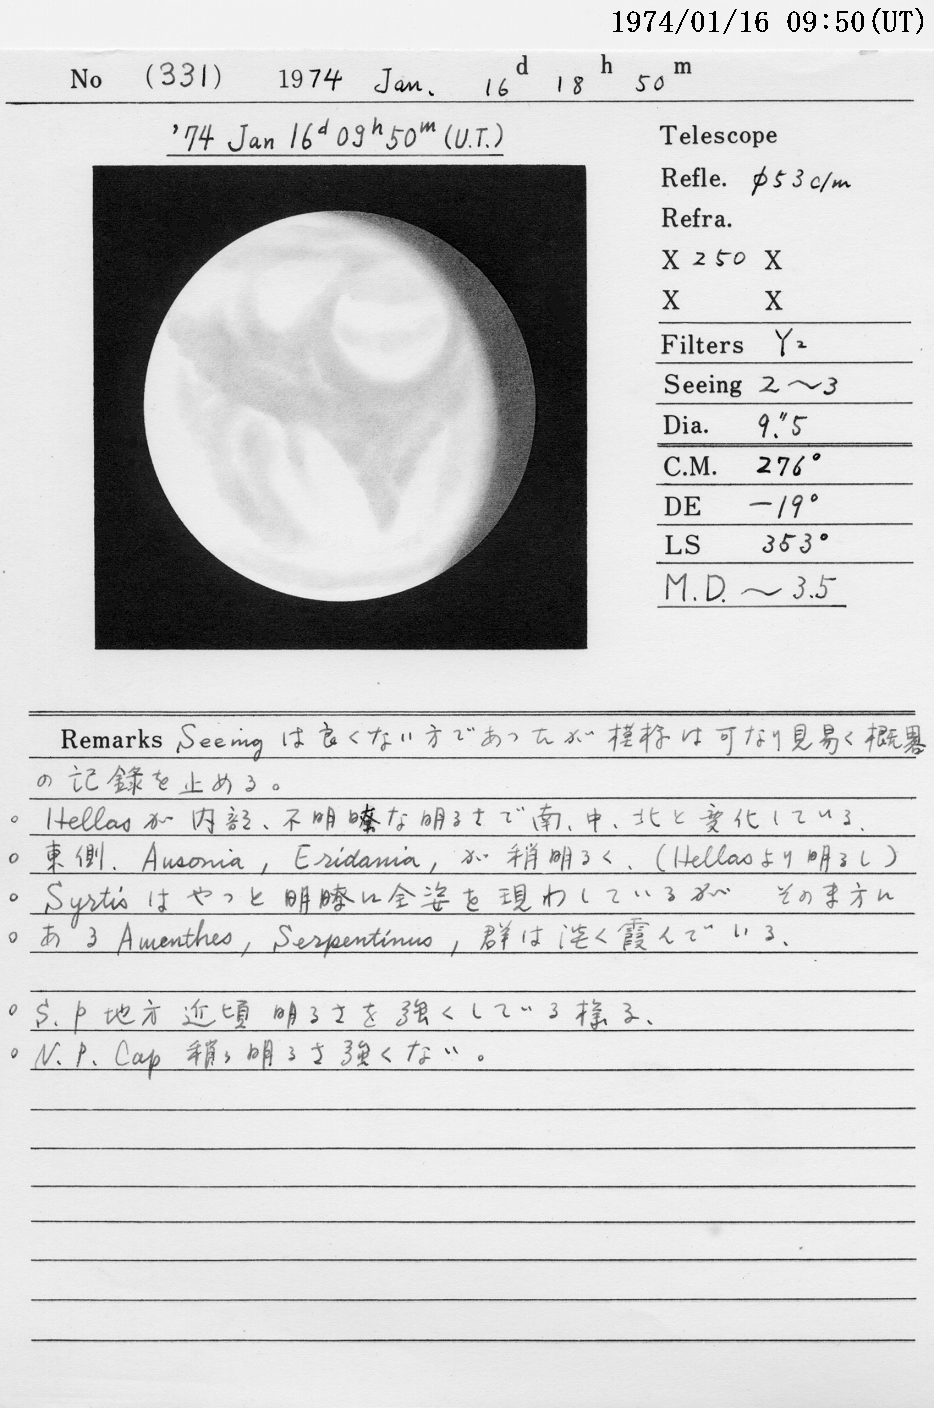 1974/01/16 09:50(UT)
No (331) 1974 Jan. 16d 18h 50m
'74 Jan 16d 09h 50m (U.T.)
Telescope
Refle. φ53c/m
Refra.
X 250 X
X X
Filters Y2
Seeing 2～3
Dia. 9."5
C.M. 276°
DE -19°
LS 353°
M.D. ～3.5
Remarks Seeingは良くない方であったが模様は可なり見易く概畧
の記錄を止める。
○ Hellasが内部、不明瞭な明るさで南、中、北と変化している、
○ 東側、Ausonia, Eridania, が稍明るく、(Hellasより明るし)
○ Syrtisはやっと明瞭に全姿を現わしているが その東方に
○ ある Amenthes, Serpentinus, 群は淡く霞んでいる、
○ S.P地方 近頃 明るさを強くしている様る、
○ N.P.Cap 稍々明るさ強くない。